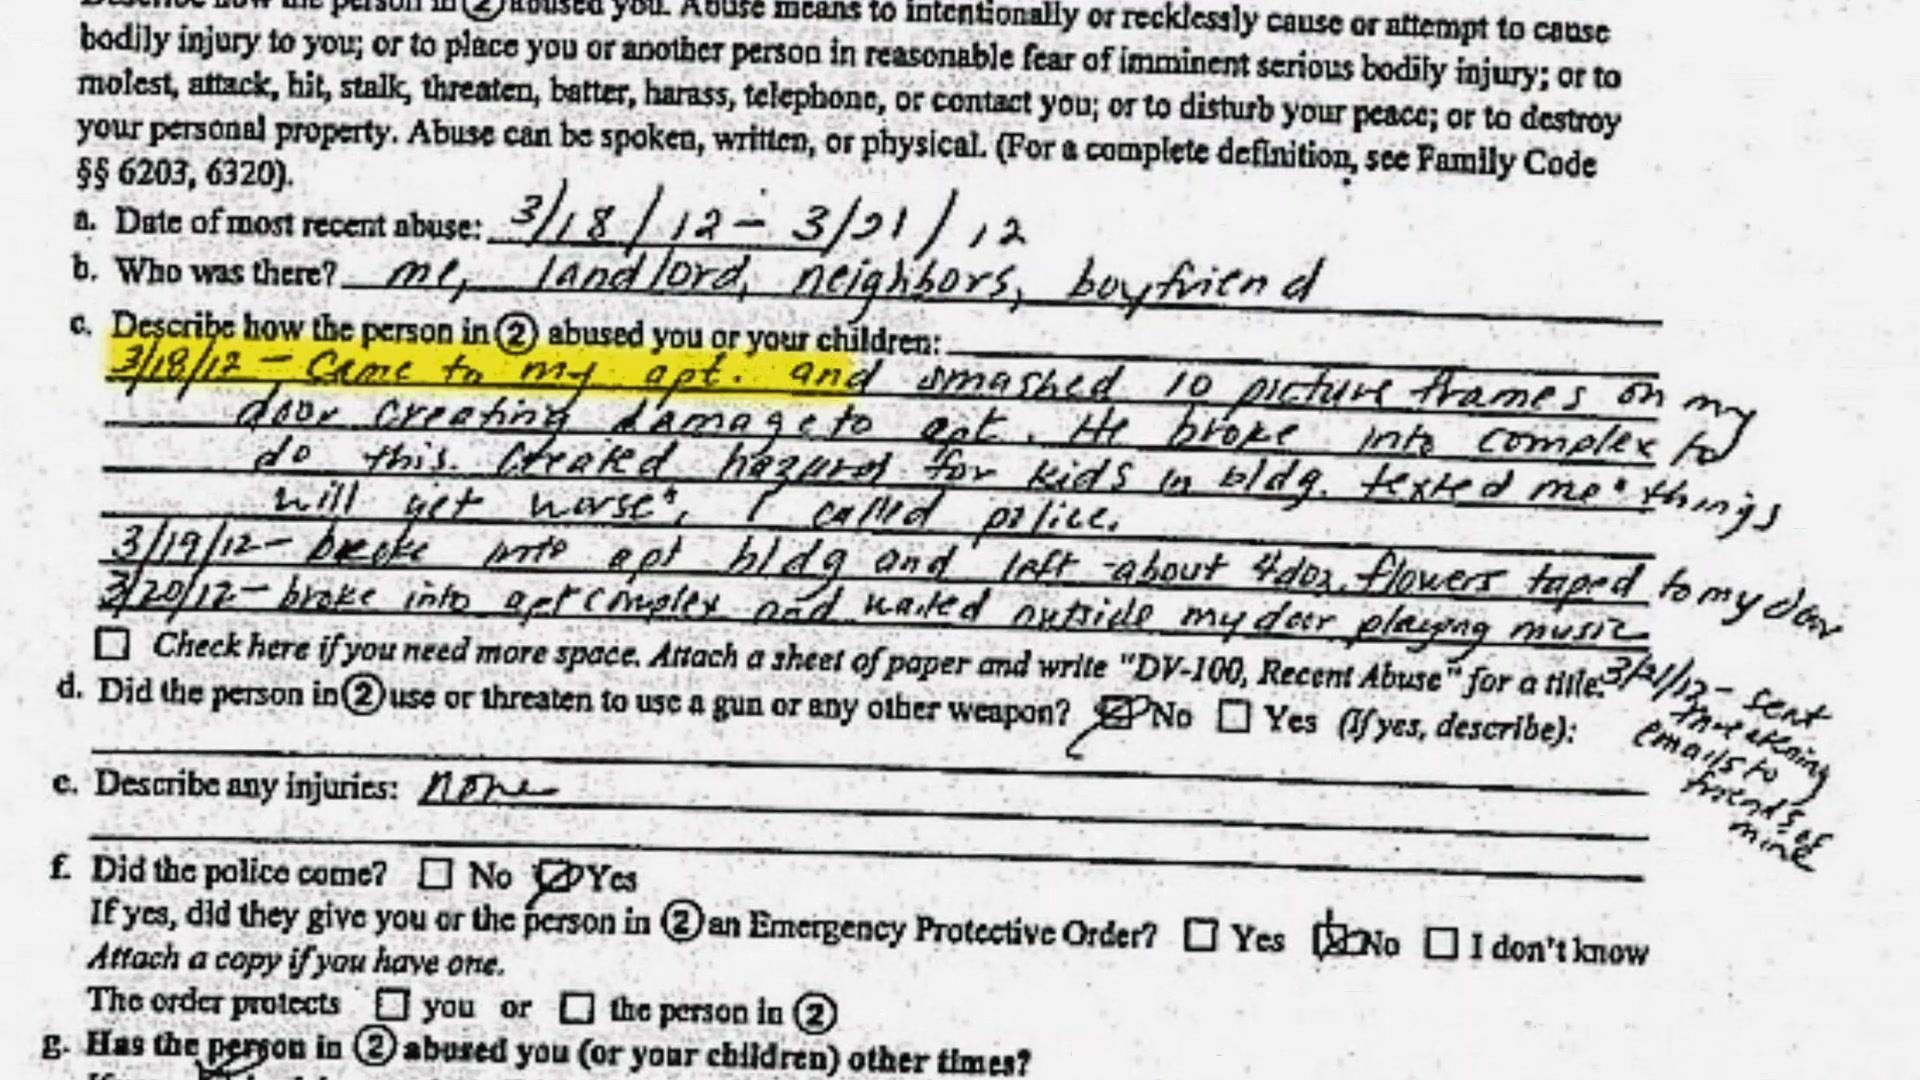 Describe how the person in ② abused you. Abuse means to intentionally or recklessly cause or attempt to cause
bodily injury to you; or to place you or another person in reasonable fear of imminent serious bodily injury; or to
molest, attack, hit, stalk, threaten, batter, harass, telephone, or contact you; or to disturb your peace; or to destroy
your personal property. Abuse can be spoken, written, or physical. (For a complete definition, see Family Code
§§ 6203, 6320).
a. Date of most recent abuse: 3/18/12 - 3/21/12
b. Who was there? me, landlord, neighbors, boyfriend
c. Describe how the person in ② abused you or your children:
3/18/12 - Came to my apt. and smashed 10 picture frames on my
door creating damage to apt. He broke into complex to
do this. Created hazard for kids in bldg. texted me "things
will get worse". I called police.
3/19/12 - broke into apt bldg and left about 4 doz. flowers taped to my door
3/20/12 - broke into apt complex and waited outside my door playing music
☐ Check here if you need more space. Attach a sheet of paper and write "DV-100, Recent Abuse" for a title.
3/21/12 - sent
threatening
emails to
friends of
mine
d. Did the person in ② use or threaten to use a gun or any other weapon? ☑ No ☐ Yes (If yes, describe):
e. Describe any injuries: none
f. Did the police come? ☐ No ☑ Yes
If yes, did they give you or the person in ② an Emergency Protective Order? ☐ Yes ☑ No ☐ I don't know
Attach a copy if you have one.
The order protects ☐ you or ☐ the person in ②
g. Has the person in ② abused you (or your children) other times?